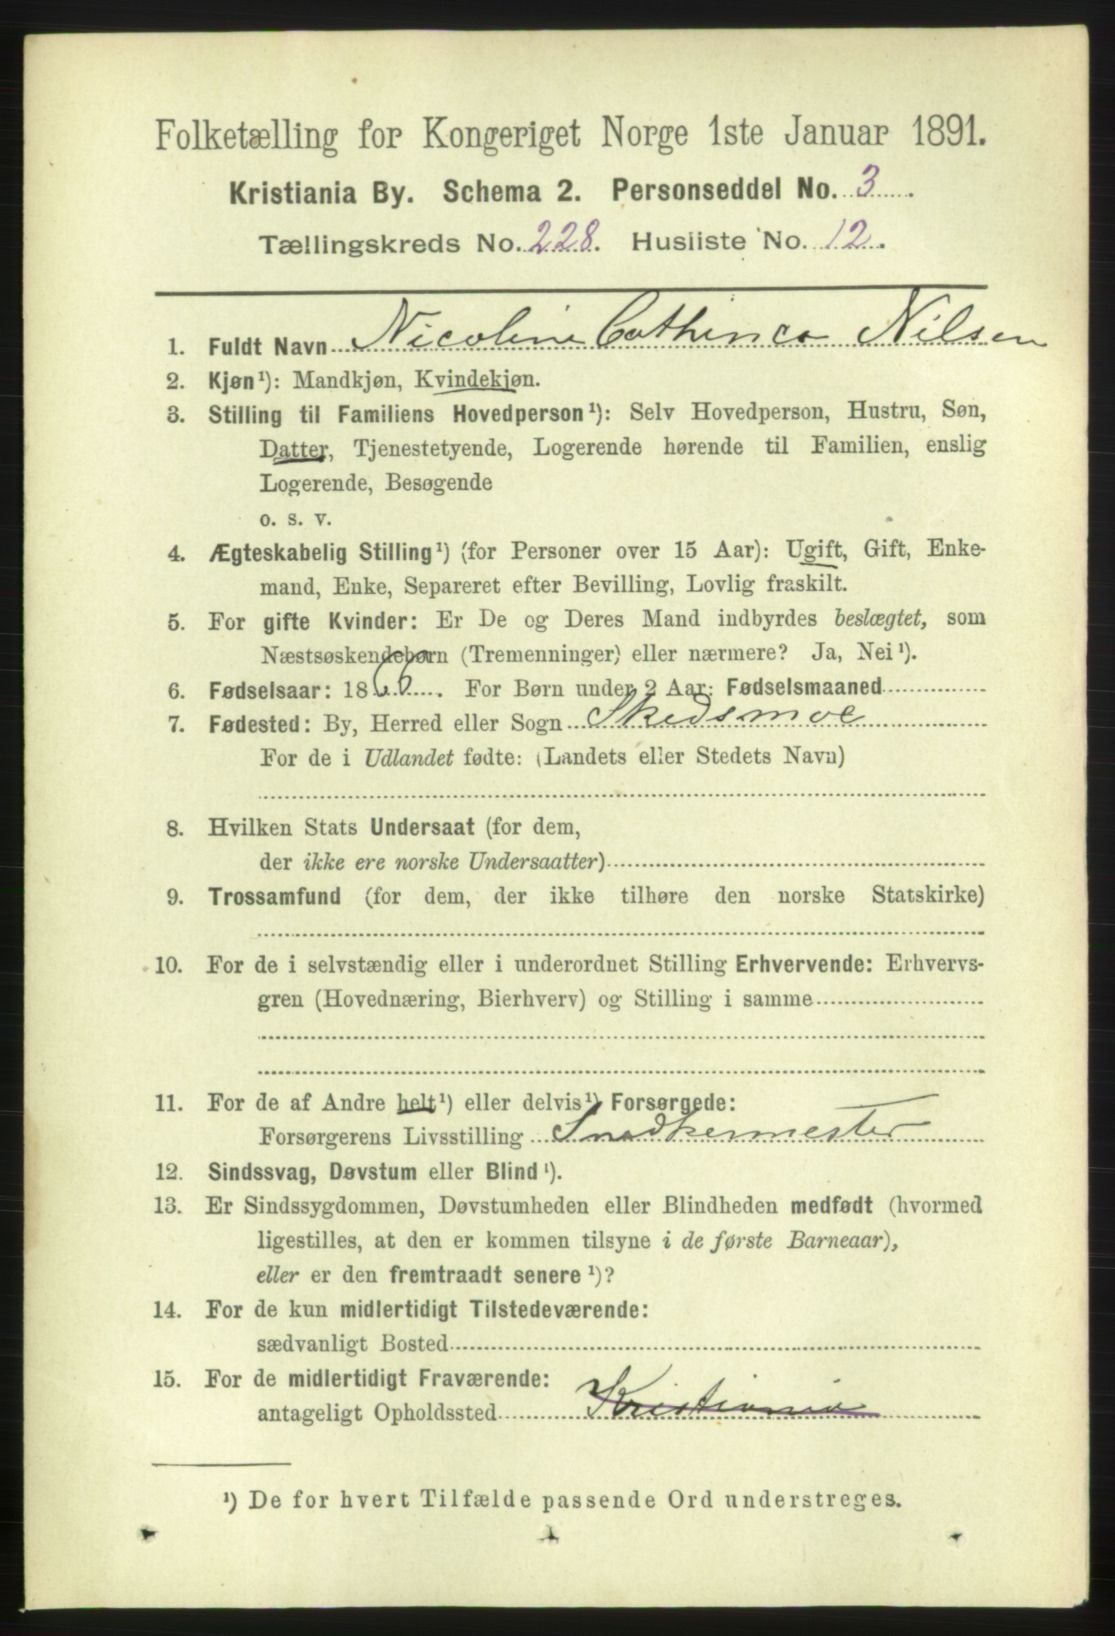 Folketælling for Kongeriget Norge 1ste Januar 1891.
Kristiania By. Schema 2. Personseddel No. 3.
Tællingskreds No. 228. Husliste No. 12.
1. Fuldt Navn Nicoline Cathinca Nilsen
2. Kjøn¹): Mandkjøn, Kvindekjøn.
3. Stilling til Familiens Hovedperson¹): Selv Hovedperson, Hustru, Søn,
Datter, Tjenestetyende, Logerende hørende til Familien, enslig
Logerende, Besøgende
o. s. v.
4. Ægteskabelig Stilling¹) (for Personer over 15 Aar): Ugift, Gift, Enke-
mand, Enke, Separeret efter Bevilling, Lovlig fraskilt.
5. For gifte Kvinder: Er De og Deres Mand indbyrdes beslægtet, som
Næstsøskendebørn (Tremenninger) eller nærmere? Ja, Nei¹).
6. Fødselsaar: 1866. For Børn under 2 Aar: Fødselsmaaned
7. Fødested: By, Herred eller Sogn Skedsmoe
For de i Udlandet fødte: (Landets eller Stedets Navn)
8. Hvilken Stats Undersaat (for dem,
der ikke ere norske Undersaatter)
9. Trossamfund (for dem, der ikke tilhøre den norske Statskirke)
10. For de i selvstændig eller i underordnet Stilling Erhvervende: Erhvervs-
gren (Hovednæring, Bierhverv) og Stilling i samme
11. For de af Andre helt¹) eller delvis¹) Forsørgede:
Forsørgerens Livsstilling Snedkermester
12. Sindssvag, Døvstum eller Blind¹).
13. Er Sindssygdommen, Døvstumheden eller Blindheden medfødt (hvormed
ligestilles, at den er kommen tilsyne i de første Barneaar),
eller er den fremtraadt senere¹)?
14. For de kun midlertidigt Tilstedeværende:
sædvanligt Bosted
15. For de midlertidigt Fraværende:
antageligt Opholdssted Kristiania
¹) De for hvert Tilfælde passende Ord understreges.